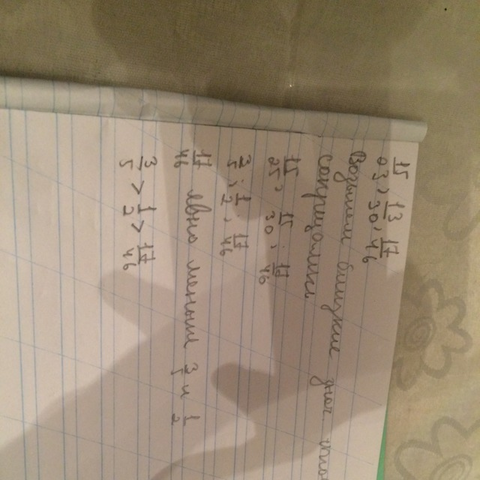 15/03, 13/30, 17/46
Возьмем близкие
сократились
15/25, 15/30, 17/46
3/5, 1/2, 17/46
17/46 явно меньше 3/5 и 1/2
3/5 > 1/2 > 17/46